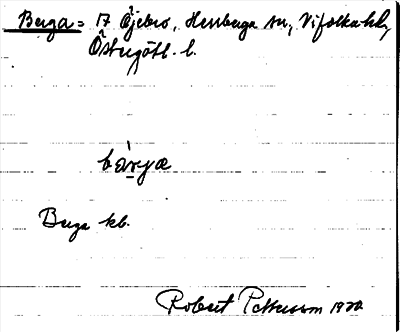 Berga = 17 Öjebro, Herrberga sn, Vifolka hd,
Östergötl. l.
bàrgæ
Berga kb.
Robert Pettersson 1920